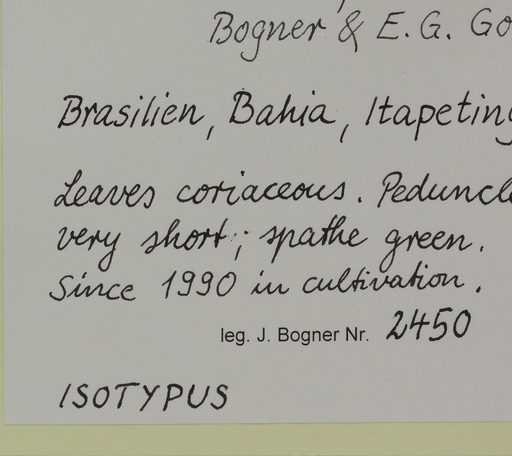 Bogner & E. G. Go
Brasilien, Bahia, Itapeting
Leaves coriaceous. Peduncle
very short; spathe green.
Since 1990 in cultivation.
leg. J. Bogner Nr. 2450
ISOTYPUS